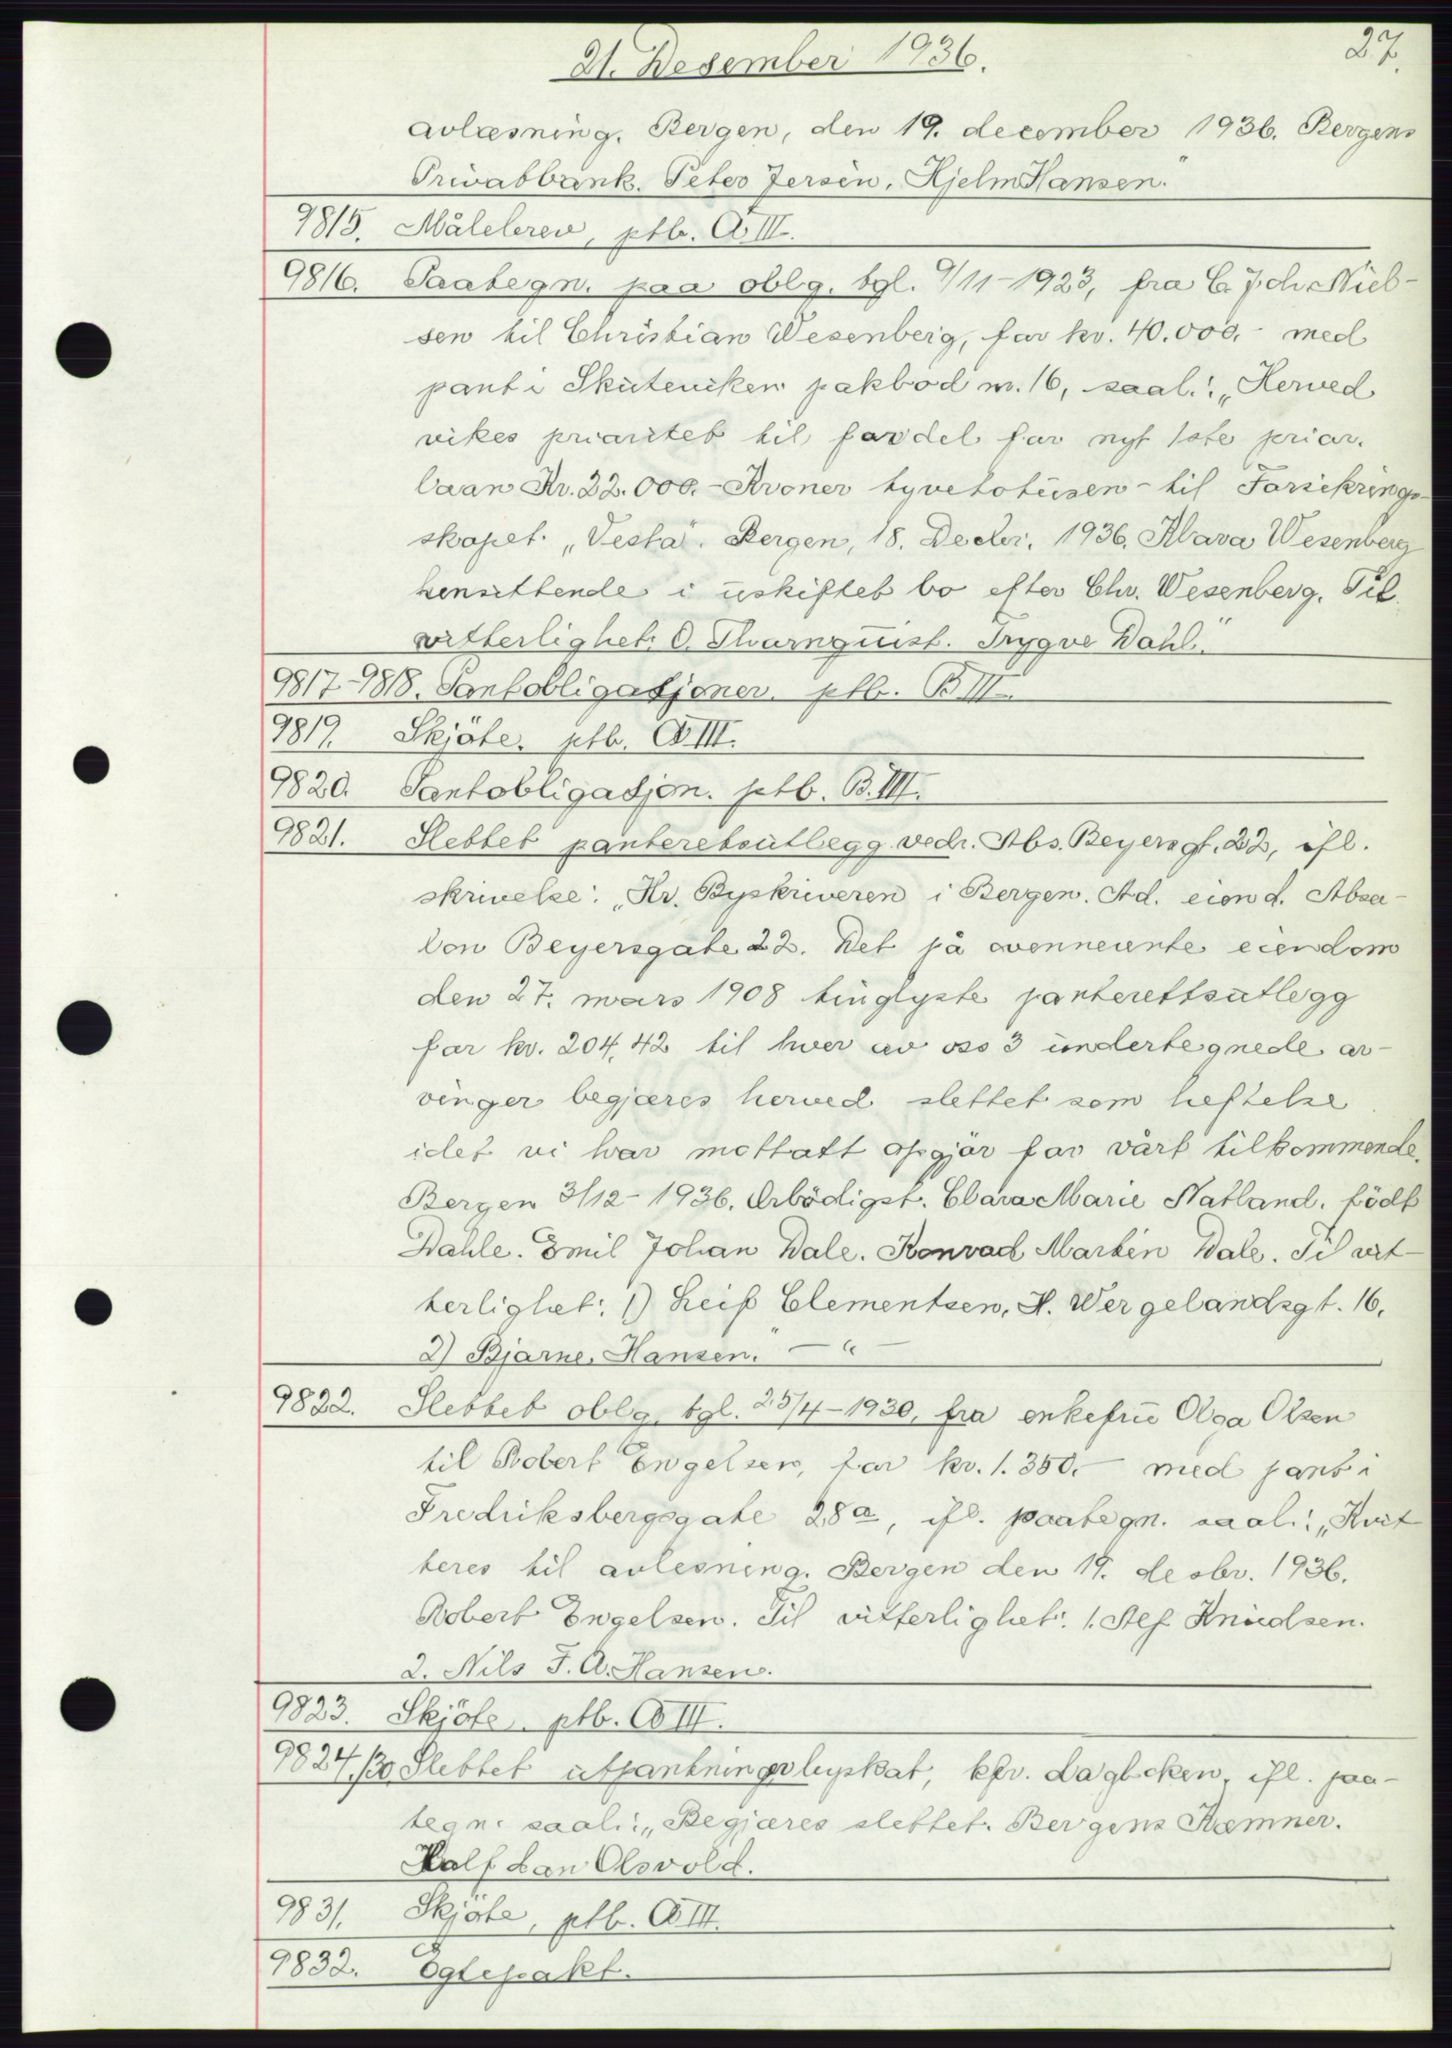 21. Desember 1936.
27.
avlæsning. Bergen, den 19. december 1936. Bergens
Privatbank. Peter Jersin. Hjelm Hansen."
9815. Målebrev, ptb. A III.
9816. Paategn. paa oblg. tgl. 9/11-1923, fra C. Joh. Niel-
sen til Christian Wesenberg, for kr. 40.000,- med
pant i Skuteviken pakbod nr. 16, saal.: „Herved
vikes prioritet til fordel for nyt 1ste prior.
laan Kr. 22.000.- Kroner tyvetotusen - til Forsikrings-
skapet „Vesta". Bergen, 18. Decbr. 1936. Klara Wesenberg
hensittende i uskiftet bo efter Chr. Wesenberg. Til
vitterlighet: O. Thurnquist. Trygve Dahl."
9817-9818. Pantobligasjoner. ptb. B III.
9819. Skjöte. ptb. A III.
9820. Pantobligasjon. ptb. B. III.
9821. Slettet panteretsutlegg vedr. Abs. Beyersgt. 22, ifl.
skrivelse: „Hr. Byskriveren i Bergen. Ad. eiend. Absa-
lon Beyersgate 22. Det på ovennevnte eiendom
den 27. mars 1908 tinglyste panterettsutlegg
for kr. 204,42 til hver av oss 3 undertegnede ar-
vinger begjæres herved slettet som heftelse
idet vi har mottatt opgjör for vårt tilkommende.
Bergen 3/12-1936. Ærbödigst. Clara Marie Natland. födt
Dahle. Emil Johan Dale. Konrad Martin Dale. Til vit-
terlighet: 1) Leif Clementsen, H. Wergelandsgt. 16.
2) Bjarne Hansen." — " —
9822. Slettet oblg. tgl. 25/4-1930, fra enkefru Olga Olsen
til Robert Engelsen, for kr. 1.350.- med pant i
Fredriksbergsgate 28a, ifl. paategn. saal.: „Kvit
teres til avlesning. Bergen den 19. desbr. 1936.
Robert Engelsen. Til vitterlighet: 1. Alf Knudsen.
2. Nils F. A. Hansen.
9823. Skjöte. ptb. A III.
9824/30 Slettet utpantning byskat, kfr. dagboken, ifl. paa-
tegn. saal.: „Begjæres slettet. Bergens Kæmner.
Ralf Lan Olsvold.
9831. Skjöte, ptb. A III.
9832. Egtepakt.